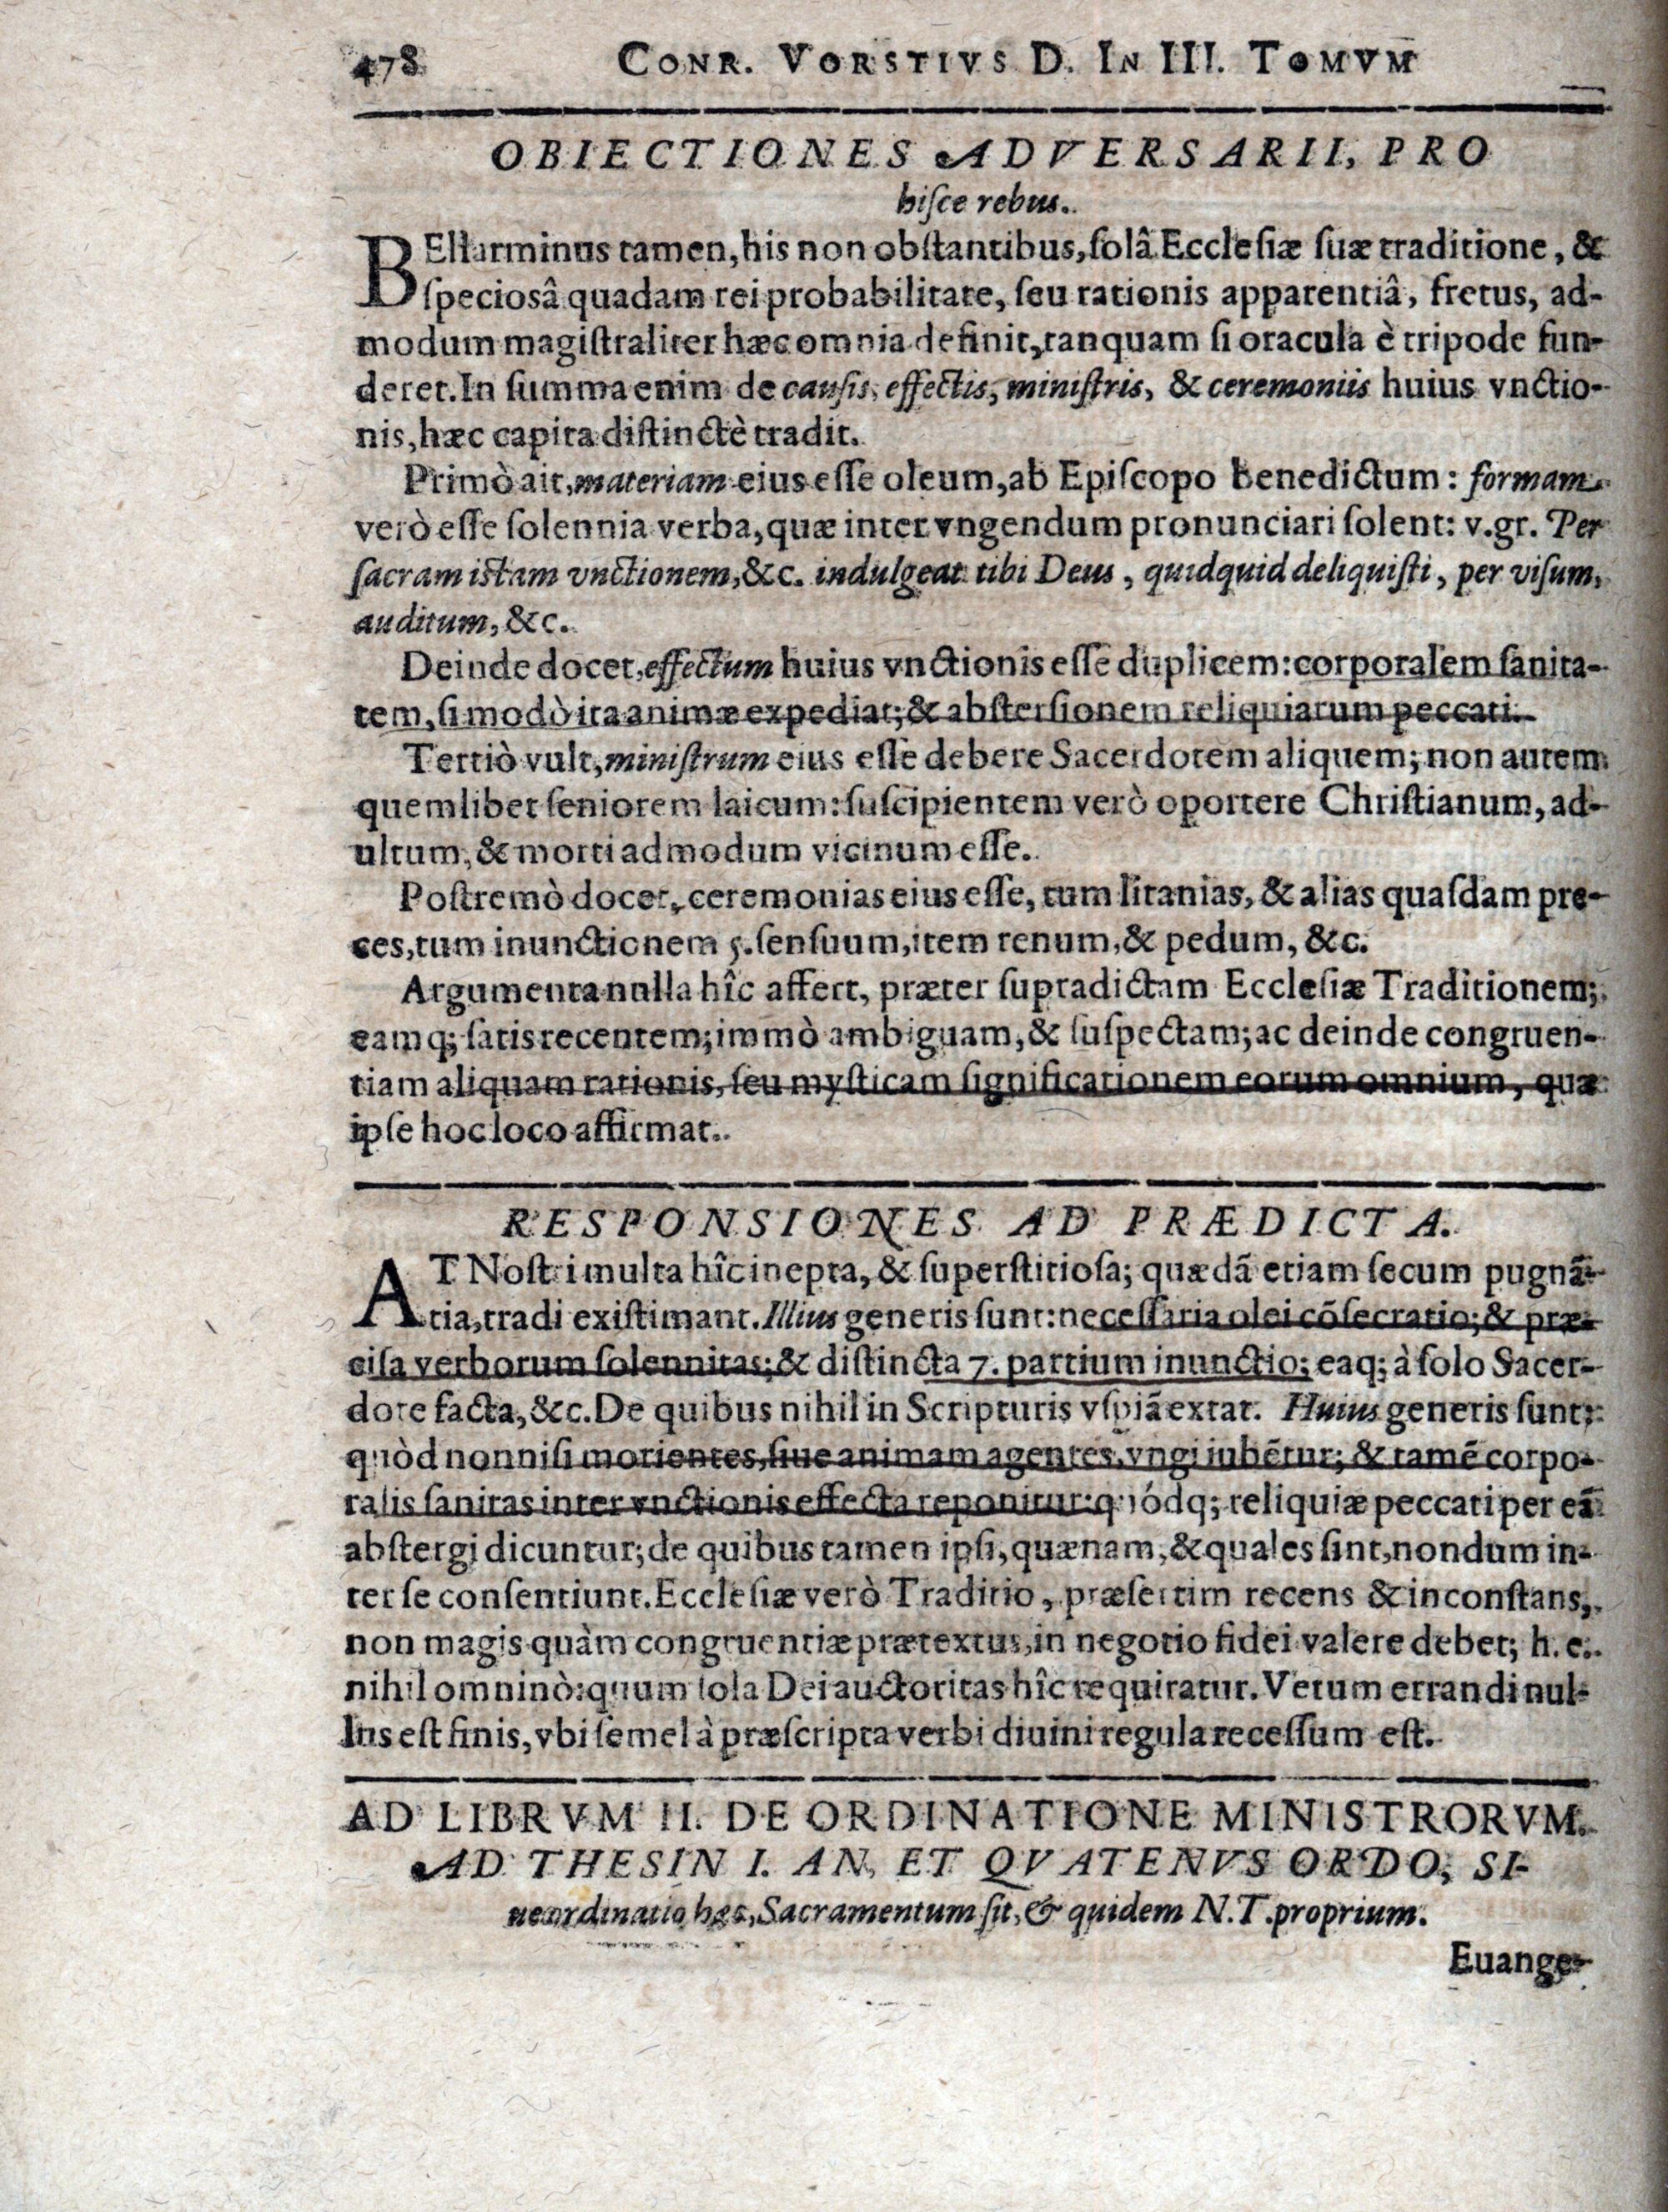 478 CONR. VORSTIVS D. IN III. TOMVM
OBIECTIONES ADVERSARII, PRO
hiſce rebus.
BEllarminus tamen, his non obſtantibus, ſolâ Eccleſiæ ſuæ traditione, &
ſpeciosâ quadam rei probabilitate, ſeu rationis apparentiâ, fretus, ad-
modum magiſtraliter hæc omnia definit, tanquam ſi oracula è tripode fun-
deret. In ſumma enim de cauſis, effectis, miniſtris, & ceremoniis huius vnctio-
nis, hæc capita diſtinctè tradit.
Primò ait, materiam eius eſſe oleum, ab Epiſcopo benedictum: formam
verò eſſe ſolennia verba, quæ inter vngendum pronunciari ſolent: v.gr. Per
ſacram iſtam vnctionem, &c. indulgeat tibi Deus, quidquid deliquiſti, per viſum,
auditum, &c.
Deinde docet, effectum huius vnctionis eſſe duplicem: corporalem ſanita-
tem, ſi modò ita animæ expediat; & abſterſionem reliquiarum peccati.
Tertiò vult, miniſtrum eius eſſe debere Sacerdotem aliquem; non autem
quemlibet ſeniorem laicum: ſuſcipientem verò oportere Chriſtianum, ad-
ultum, & morti admodum vicinum eſſe.
Poſtremò docet, ceremonias eius eſſe, tum litanias, & alias quaſdam pre-
ces, tum inunctionem 5. ſenſuum, item renum, & pedum, &c.
Argumenta nulla hîc affert, præter ſupradictam Eccleſiæ Traditionem;
eamq; ſatis recentem; immò ambiguam, & ſuſpectam; ac deinde congruen-
tiam aliquam rationis, ſeu myſticam ſignificationem eorum omnium, quæ
ipſe hoc loco affirmat.
RESPONSIONES AD PRÆDICTA.
AT Noſtri multa hîc inepta, & ſuperſtitioſa; quædã etiam ſecum pugnã-
tia, tradi exiſtimant. Illius generis ſunt: neceſſaria olei cõſecratio; & præ-
ciſa verborum ſolennitas; & diſtincta 7. partium inunctio; eaq; à ſolo Sacer-
dote facta, &c. De quibus nihil in Scripturis vſpiã extat. Huius generis ſunt;
quòd nonniſi morientes, ſiue animam agentes, vngi iubẽtur; & tamẽ corpo-
ralis ſanitas inter vnctionis effecta reponitur: quódq; reliquiæ peccati per eã
abſtergi dicuntur; de quibus tamen ipſi, quænam, & quales ſint, nondum in-
ter ſe conſentiunt. Eccleſiæ verò Traditio, præſertim recens & inconſtans,
non magis quàm congruentiæ prætextus, in negotio fidei valere debet; h. e.
nihil omninò: quum ſola Dei auctoritas hîc requiratur. Verum errandi nul-
lus eſt finis, vbi ſemel à præſcripta verbi diuini regula receſſum eſt.
AD LIBRVM II. DE ORDINATIONE MINISTRORVM.
AD THESIN I. AN, ET QVATENVS ORDO, SI-
ue ordinatio hæc, Sacramentum ſit, & quidem N.T. proprium.
Euange-